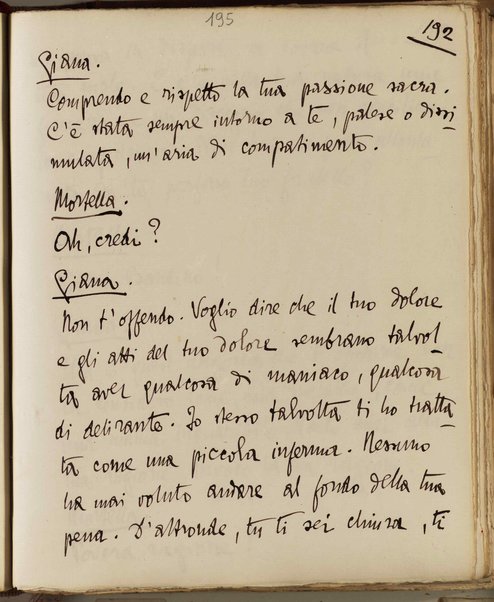 195
192
Giana.
Comprendo e rispetto la tua passione sacra.
C'è stata sempre intorno a te, palese o dissi
mulata, un'aria di compatimento.
Mortella.
Ah, credi?
Giana.
Non t'offendo. Voglio dire che il tuo dolore
e gli atti del tuo dolore sembrano talvol
ta aver qualcosa di maniaco, qualcosa
di delirante. Io stesso talvolta ti ho tratta
ta come una piccola inferma. Nessuno
ha mai voluto andare al fondo della tua
pena. D'altronde, tu ti sei chiusa, ti